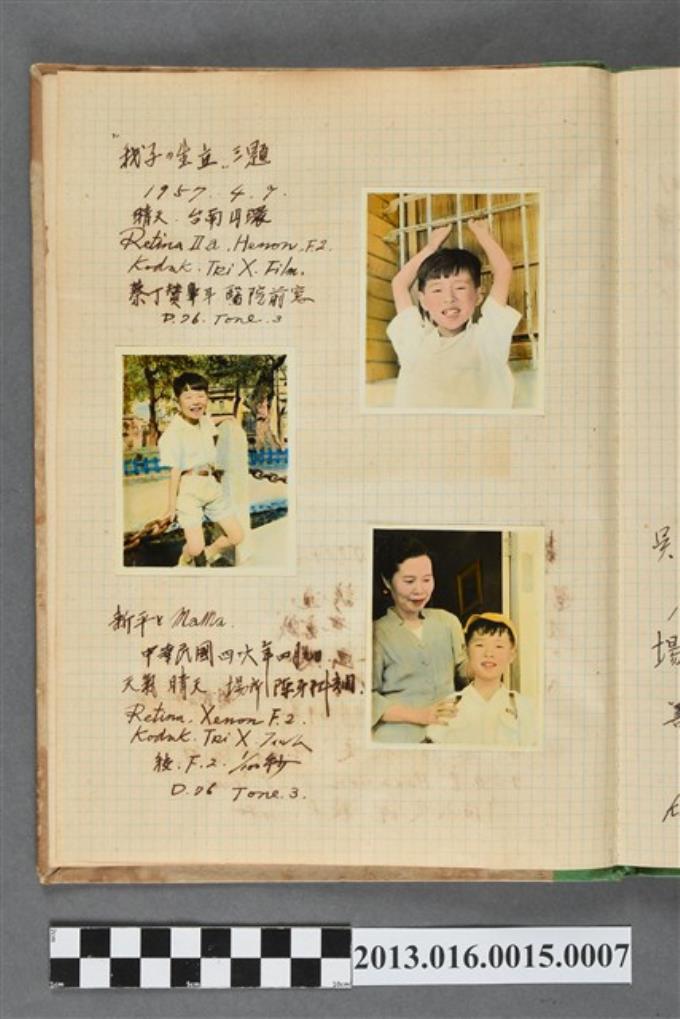 "我子の生立"三題
1957. 4. 7.
晴天. 台南円環
Retina IIa. Henon. F.2.
Kodak. Tri X. Film.
蔡丁贊 醫院前窓
D.76. Tone. 3
新平と MaMa
中華民國四六年四月
天氣 晴天 場所 陳牙科
Retina. Xenon F.2.
Kodak. Tri X. フィルム
絞. F.2. 1/100秒
D.76 Tone. 3.
吳
場
2013.016.0015.0007